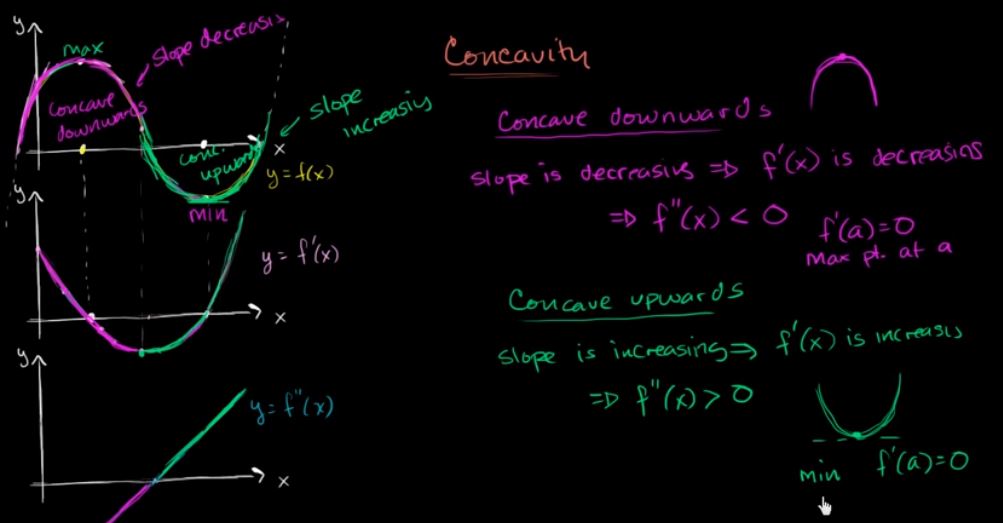 y
max
slope decreasis
Concave
downwards
slope
increasis
conc.
upwards
x
y = f(x)
min
y
y = f'(x)
x
y
y = f''(x)
x
Concavity
Concave downwards
slope is decreasing ⇒ f'(x) is decreasing
⇒ f''(x) < 0
f'(a)=0
max pt. at a
Concave upwards
slope is increasing ⇒ f'(x) is increasis
⇒ f''(x) > 0
min f'(a)=0